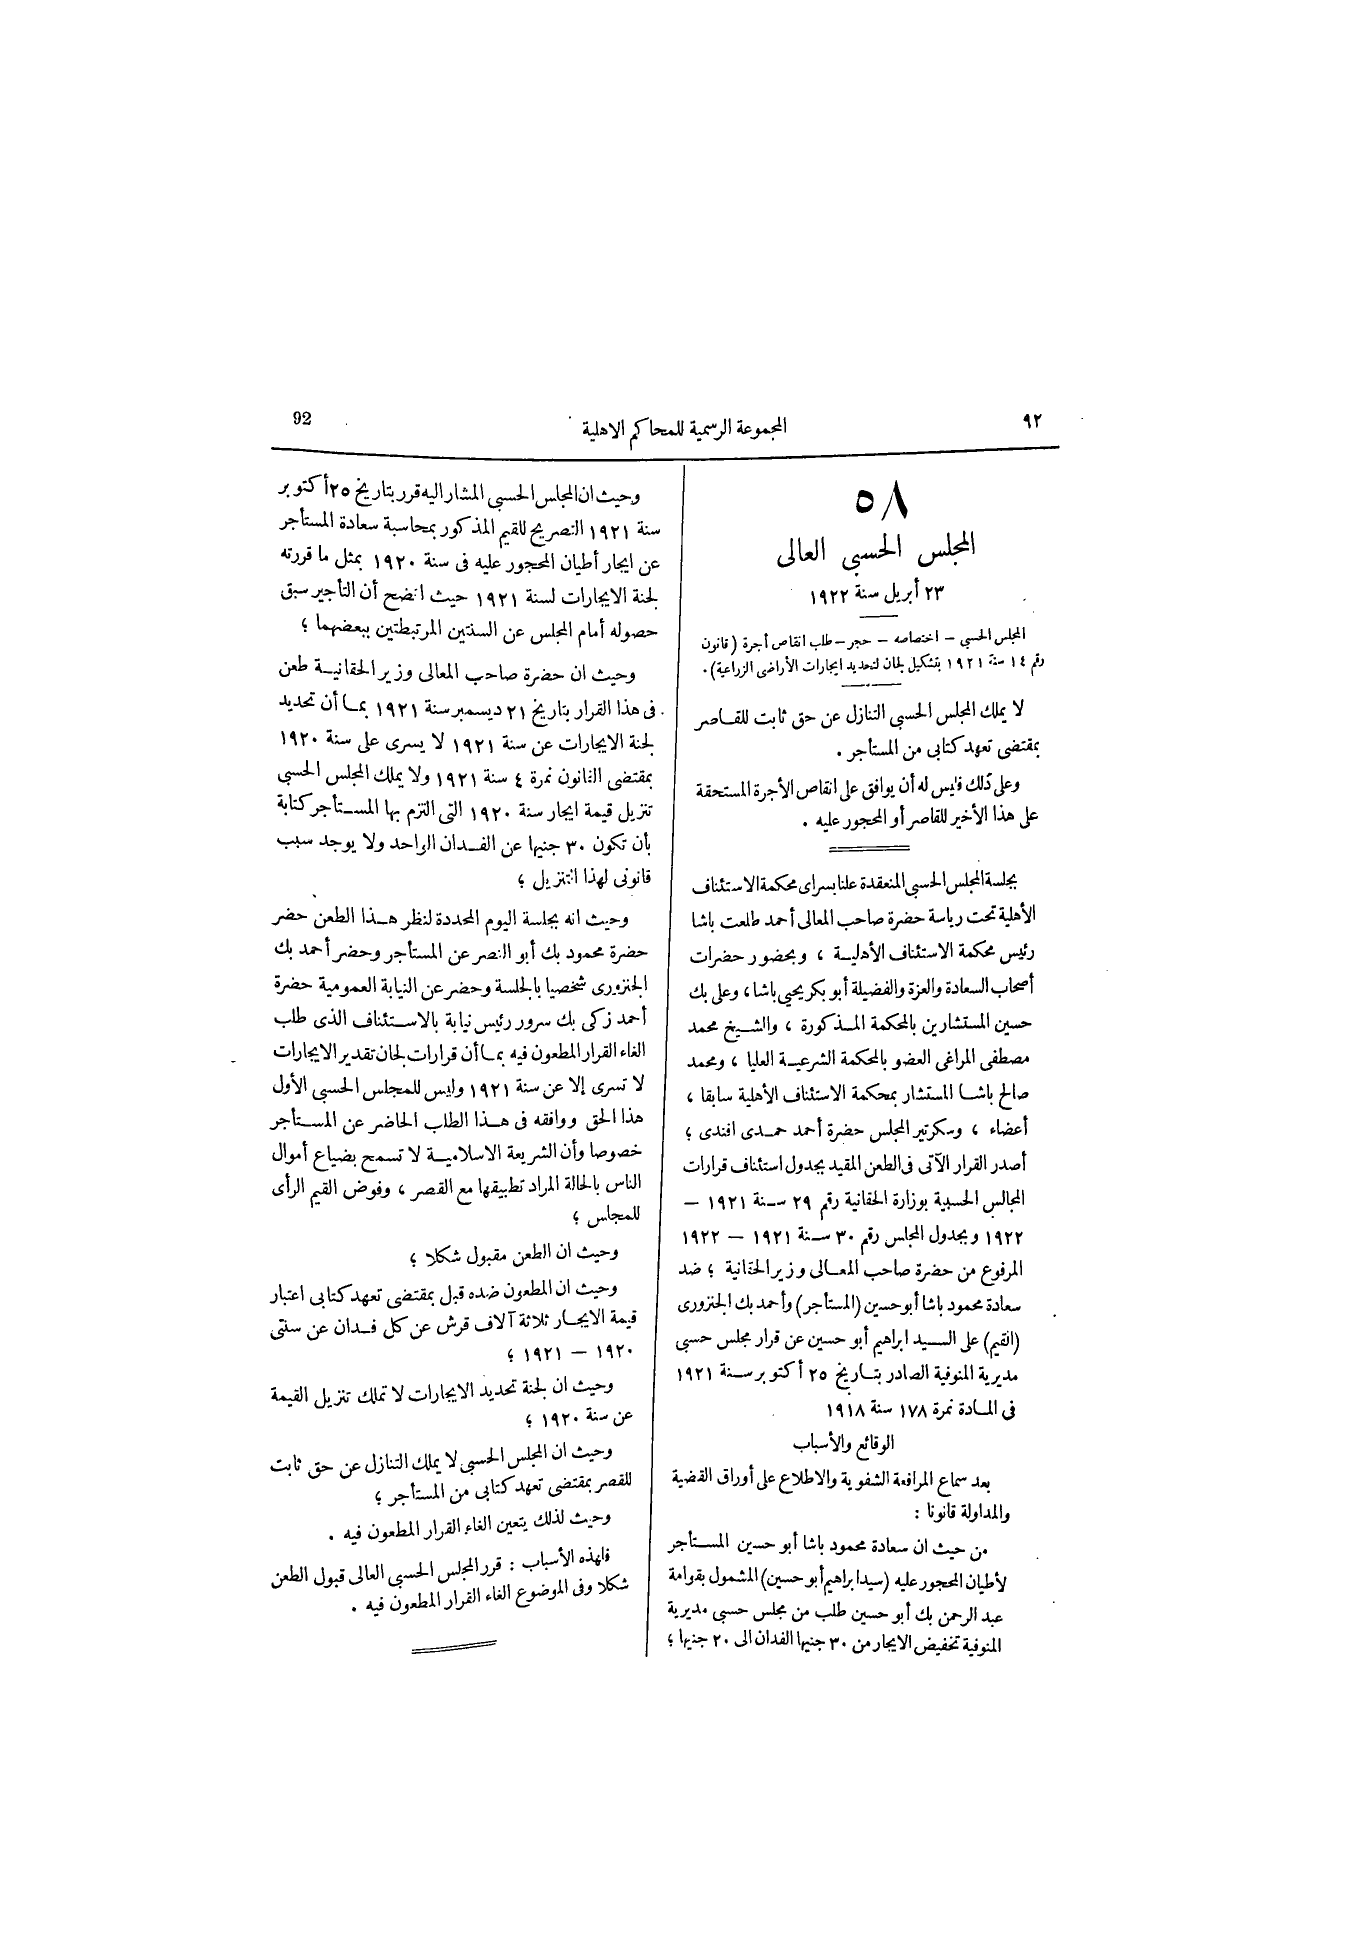 ٩٢
المجموعة الرسمية للمحاكم الاهلية
92
٥٨
المجلس الحسبى العالى
٢٣ أبريل سنة ١٩٢٢
المجلس الحسبى – اختصاصه – حجر – طلب انقاص أجرة (قانون
رقم ١٤ سنة ١٩٢١ بتشكيل لجان لتحديد ايجارات الأراضى الزراعية).
لا يملك المجلس الحسبى التنازل عن حق ثابت للقاصر
بمقتضى تعهد كتابى من المستأجر .
وعلى ذلك فليس له أن يوافق على انقاص الأجرة المستحقة
على هذا الأخير للقاصر أو المحجور عليه .
بجلسة المجلس الحسبى المنعقدة علنا بسراى محكمة الاستئناف
الأهلية تحت رياسة حضرة صاحب المعالى أحمد طلعت باشا
رئيس محكمة الاستئناف الأهلية ، وبحضور حضرات
أصحاب السعادة والعزة والفضيلة أبو بكر يحيى باشا ، وعلى بك
حسين المستشارين بالمحكمة المذكورة ، والشيخ محمد
مصطفى المراغى العضو بالمحكمة الشرعية العليا ، ومحمد
صالح باشا المستشار بمحكمة الاستئناف الأهلية سابقا ،
أعضاء ، وسكرتير المجلس حضرة أحمد حمدى افندى ؛
أصدر القرار الآتى فى الطعن المقيد بجدول استئناف قرارات
المجالس الحسبية بوزارة الحقانية رقم ٢٩ سنة ١٩٢١ –
١٩٢٢ وبجدول المجلس رقم ٣٠ سنة ١٩٢١ – ١٩٢٢
المرفوع من حضرة صاحب المعالى وزير الحقانية ؛ ضد
سعادة محمود باشا أبو حسين (المستأجر) وأحمد بك الجنزورى
(القيم) على السيد ابراهيم أبو حسين عن قرار مجلس حسبى
مديرية المنوفية الصادر بتاريخ ٢٥ أكتوبر سنة ١٩٢١
فى المادة نمرة ١٧٨ سنة ١٩١٨
الوقائع والأسباب
بعد سماع المرافعة الشفوية والاطلاع على أوراق القضية
والمداولة قانونا :
من حيث ان سعادة محمود باشا أبو حسين المستأجر
لأطيان المحجور عليه (سيد ابراهيم أبو حسين) المشمول بقوامة
عبد الرحمن بك أبو حسين طلب من مجلس حسبى مديرية
المنوفية تخفيض الايجار من ٣٠ جنيها الفدان الى ٢٠ جنيها ؛
وحيث ان المجلس الحسبى المشار اليه قرر بتاريخ ٢٥ أكتوبر
سنة ١٩٢١ التصريح للقيم المذكور بمحاسبة سعادة المستأجر
عن ايجار أطيان المحجور عليه فى سنة ١٩٢٠ بمثل ما قررته
لجنة الايجارات لسنة ١٩٢١ حيث اتضح أن التأجير سبق
حصوله أمام المجلس عن السنتين المرتبطتين ببعضهما ؛
وحيث ان حضرة صاحب المعالى وزير الحقانية طعن
فى هذا القرار بتاريخ ٢١ ديسمبر سنة ١٩٢١ بما أن تحديد
لجنة الايجارات عن سنة ١٩٢١ لا يسرى على سنة ١٩٢٠
بمقتضى القانون نمرة ٤ سنة ١٩٢١ ولا يملك المجلس الحسبى
تنزيل قيمة ايجار سنة ١٩٢٠ التى التزم بها المستأجر كتابة
بأن تكون ٣٠ جنيها عن الفدان الواحد ولا يوجد سبب
قانونى لهذا التنزيل ؛
وحيث انه بجلسة اليوم المحددة لنظر هذا الطعن حضر
حضرة محمود بك أبو النصر عن المستأجر وحضر أحمد بك
الجنزورى شخصيا بالجلسة وحضر عن النيابة العمومية حضرة
أحمد زكى بك سرور رئيس نيابة بالاستئناف الذى طلب
الغاء القرار المطعون فيه بما أن قرارات لجان تقدير الايجارات
لا تسرى إلا عن سنة ١٩٢١ وليس للمجلس الحسبى الأول
هذا الحق ووافقه فى هذا الطلب الحاضر عن المستأجر
خصوصا وأن الشريعة الاسلامية لا تسمح بضياع أموال
الناس بالحالة المراد تطبيقها مع القصر ، وفوض القيم الرأى
للمجلس ؛
وحيث ان الطعن مقبول شكلا ؛
وحيث ان المطعون ضده قبل بمقتضى تعهد كتابى اعتبار
قيمة الايجار ثلاثة آلاف قرش عن كل فدان عن سنتى
١٩٢٠ – ١٩٢١ ؛
وحيث ان لجنة تحديد الايجارات لا تملك تنزيل القيمة
عن سنة ١٩٢٠ ؛
وحيث ان المجلس الحسبى لا يملك التنازل عن حق ثابت
للقصر بمقتضى تعهد كتابى من المستأجر ؛
وحيث لذلك يتعين الغاء القرار المطعون فيه .
فلهذه الأسباب : قرر المجلس الحسبى العالى قبول الطعن
شكلا وفى الموضوع الغاء القرار المطعون فيه .